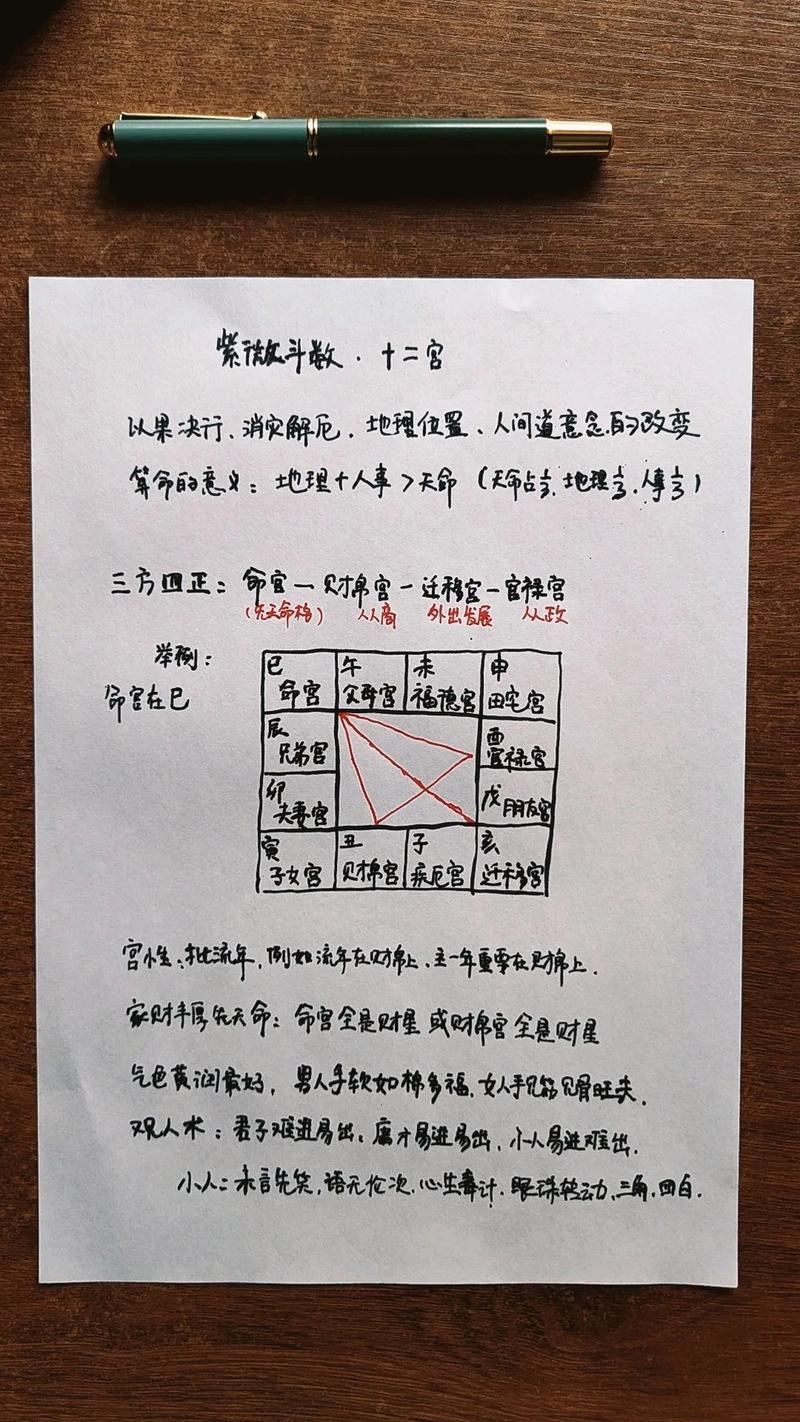 紫微斗数·十二宫
以果决行、消灾解厄、地理位置、人间道意念的改变
算命的意义：地理+人事>天命（天命占⅓、地理⅓、人事⅓）
三方四正：命宫—财帛宫—迁移宫—官禄宫
（先天命格） 从商 外出发展 从政
举例：
命宫在巳
巳 午 未 申
命宫 父母宫 福德宫 田宅宫
辰 酉
兄弟宫 官禄宫
卯 戌
夫妻宫 朋友宫
寅 丑 子 亥
子女宫 财帛宫 疾厄宫 迁移宫
宫性、批流年，例如流年在财帛上、主一年重要在财帛上.
家财丰厚先天命：命宫全是财星 或财帛宫全是财星
气色黄润最好，男人手软如棉多福，女人手见筋见骨旺夫.
观人术：君子难进易出、庸才易进易出、小人易进难出.
小人：未言先笑，语无伦次、心生毒计、眼珠转动、三角、四白.